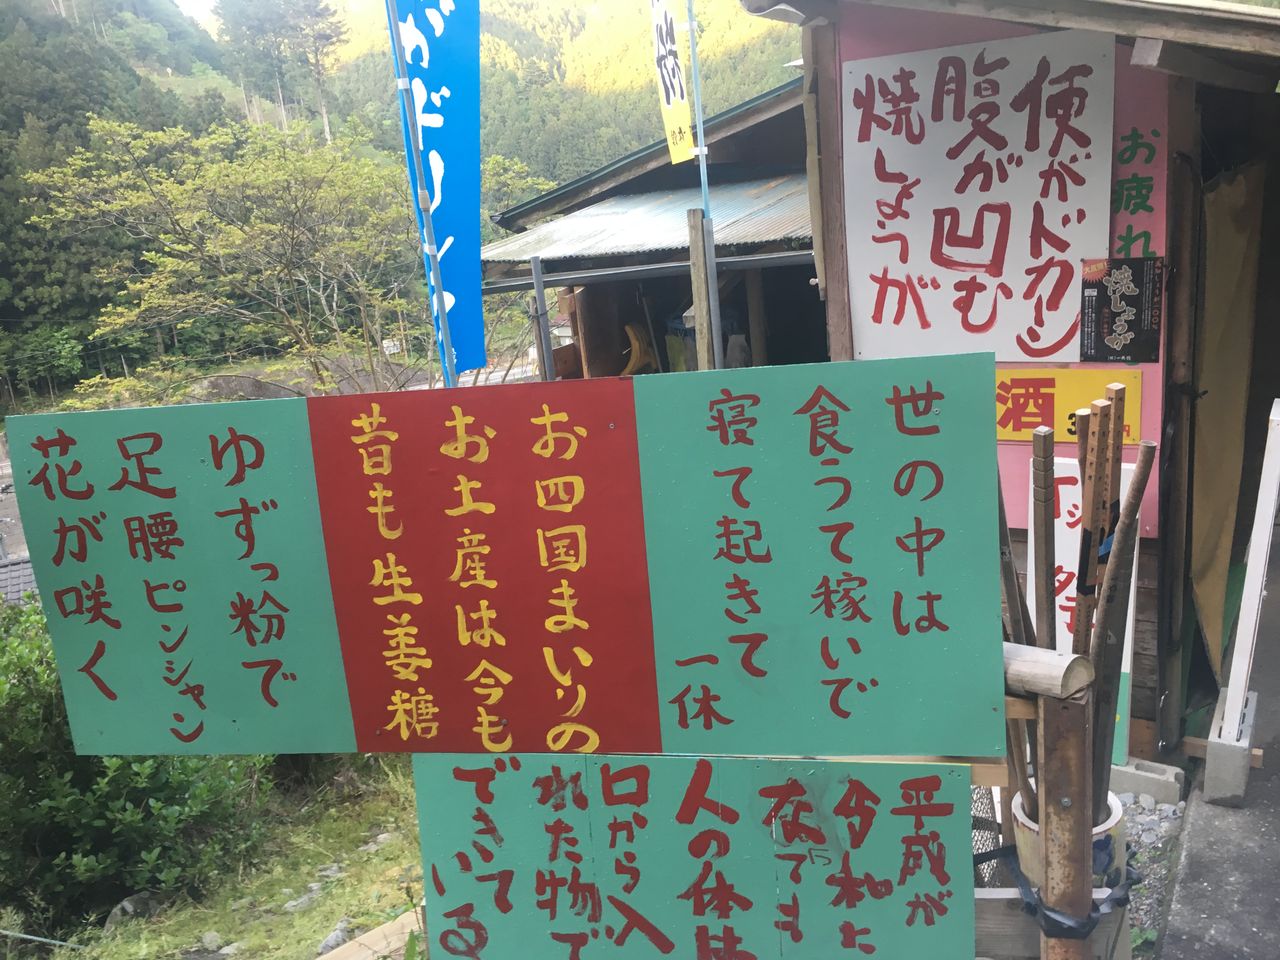 便がドカーン
腹が凹む
焼しょうが
お疲れ
焼しょうが
酒
世の中は
食うて稼いで
寝て起きて
一休
お四国まいりの
お土産は今も
昔も生姜糖
ゆずっ粉で
足腰ピンシャン
花が咲く
平成が
令和に
なっても
人の体は
口から入
れた物で
できている